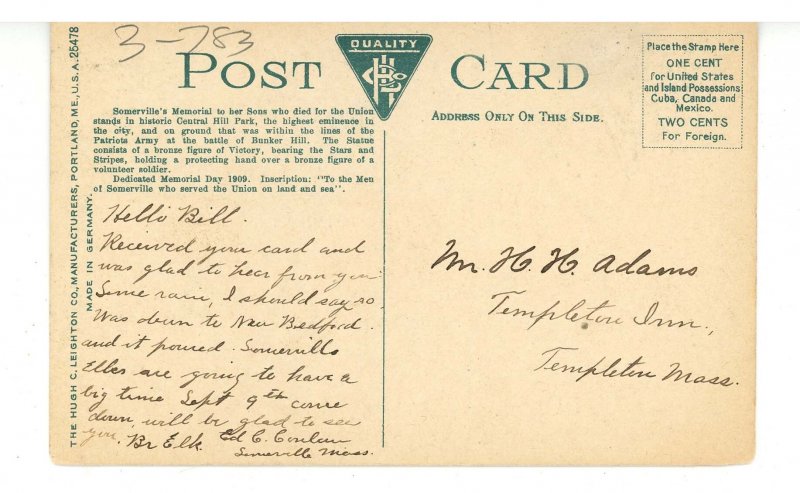 3-783
QUALITY
POST CARD
ADDRESS ONLY ON THIS SIDE.
Place the Stamp Here
ONE CENT
for United States
and Island Possessions
Cuba, Canada and
Mexico.
TWO CENTS
For Foreign.
THE HUGH C. LEIGHTON CO., MANUFACTURERS, PORTLAND, ME., U.S.A. 25478
MADE IN GERMANY.
Somerville's Memorial to her Sons who died for the Union
stands in historic Central Hill Park, the highest eminence in
the city, and on ground that was within the lines of the
Patriots Army at the battle of Bunker Hill. The Statue
consists of a bronze figure of Victory, bearing the Stars and
Stripes, holding a protecting hand over a bronze figure of a
volunteer soldier.
Dedicated Memorial Day 1909. Inscription: "To the Men
of Somerville who served the Union on land and sea".
Hello Bill.
Received your card and
was glad to hear from you
Some rain, I should say so
Was down to New Bedford.
and it poured. Somerville
Elks are going to have a
big time Sept 9th come
down, will be glad to see
you. Br Elk. Ed C. Conlan
Somerville Mass.
Mr. H. H. Adams
Templeton Inn,
Templeton Mass.